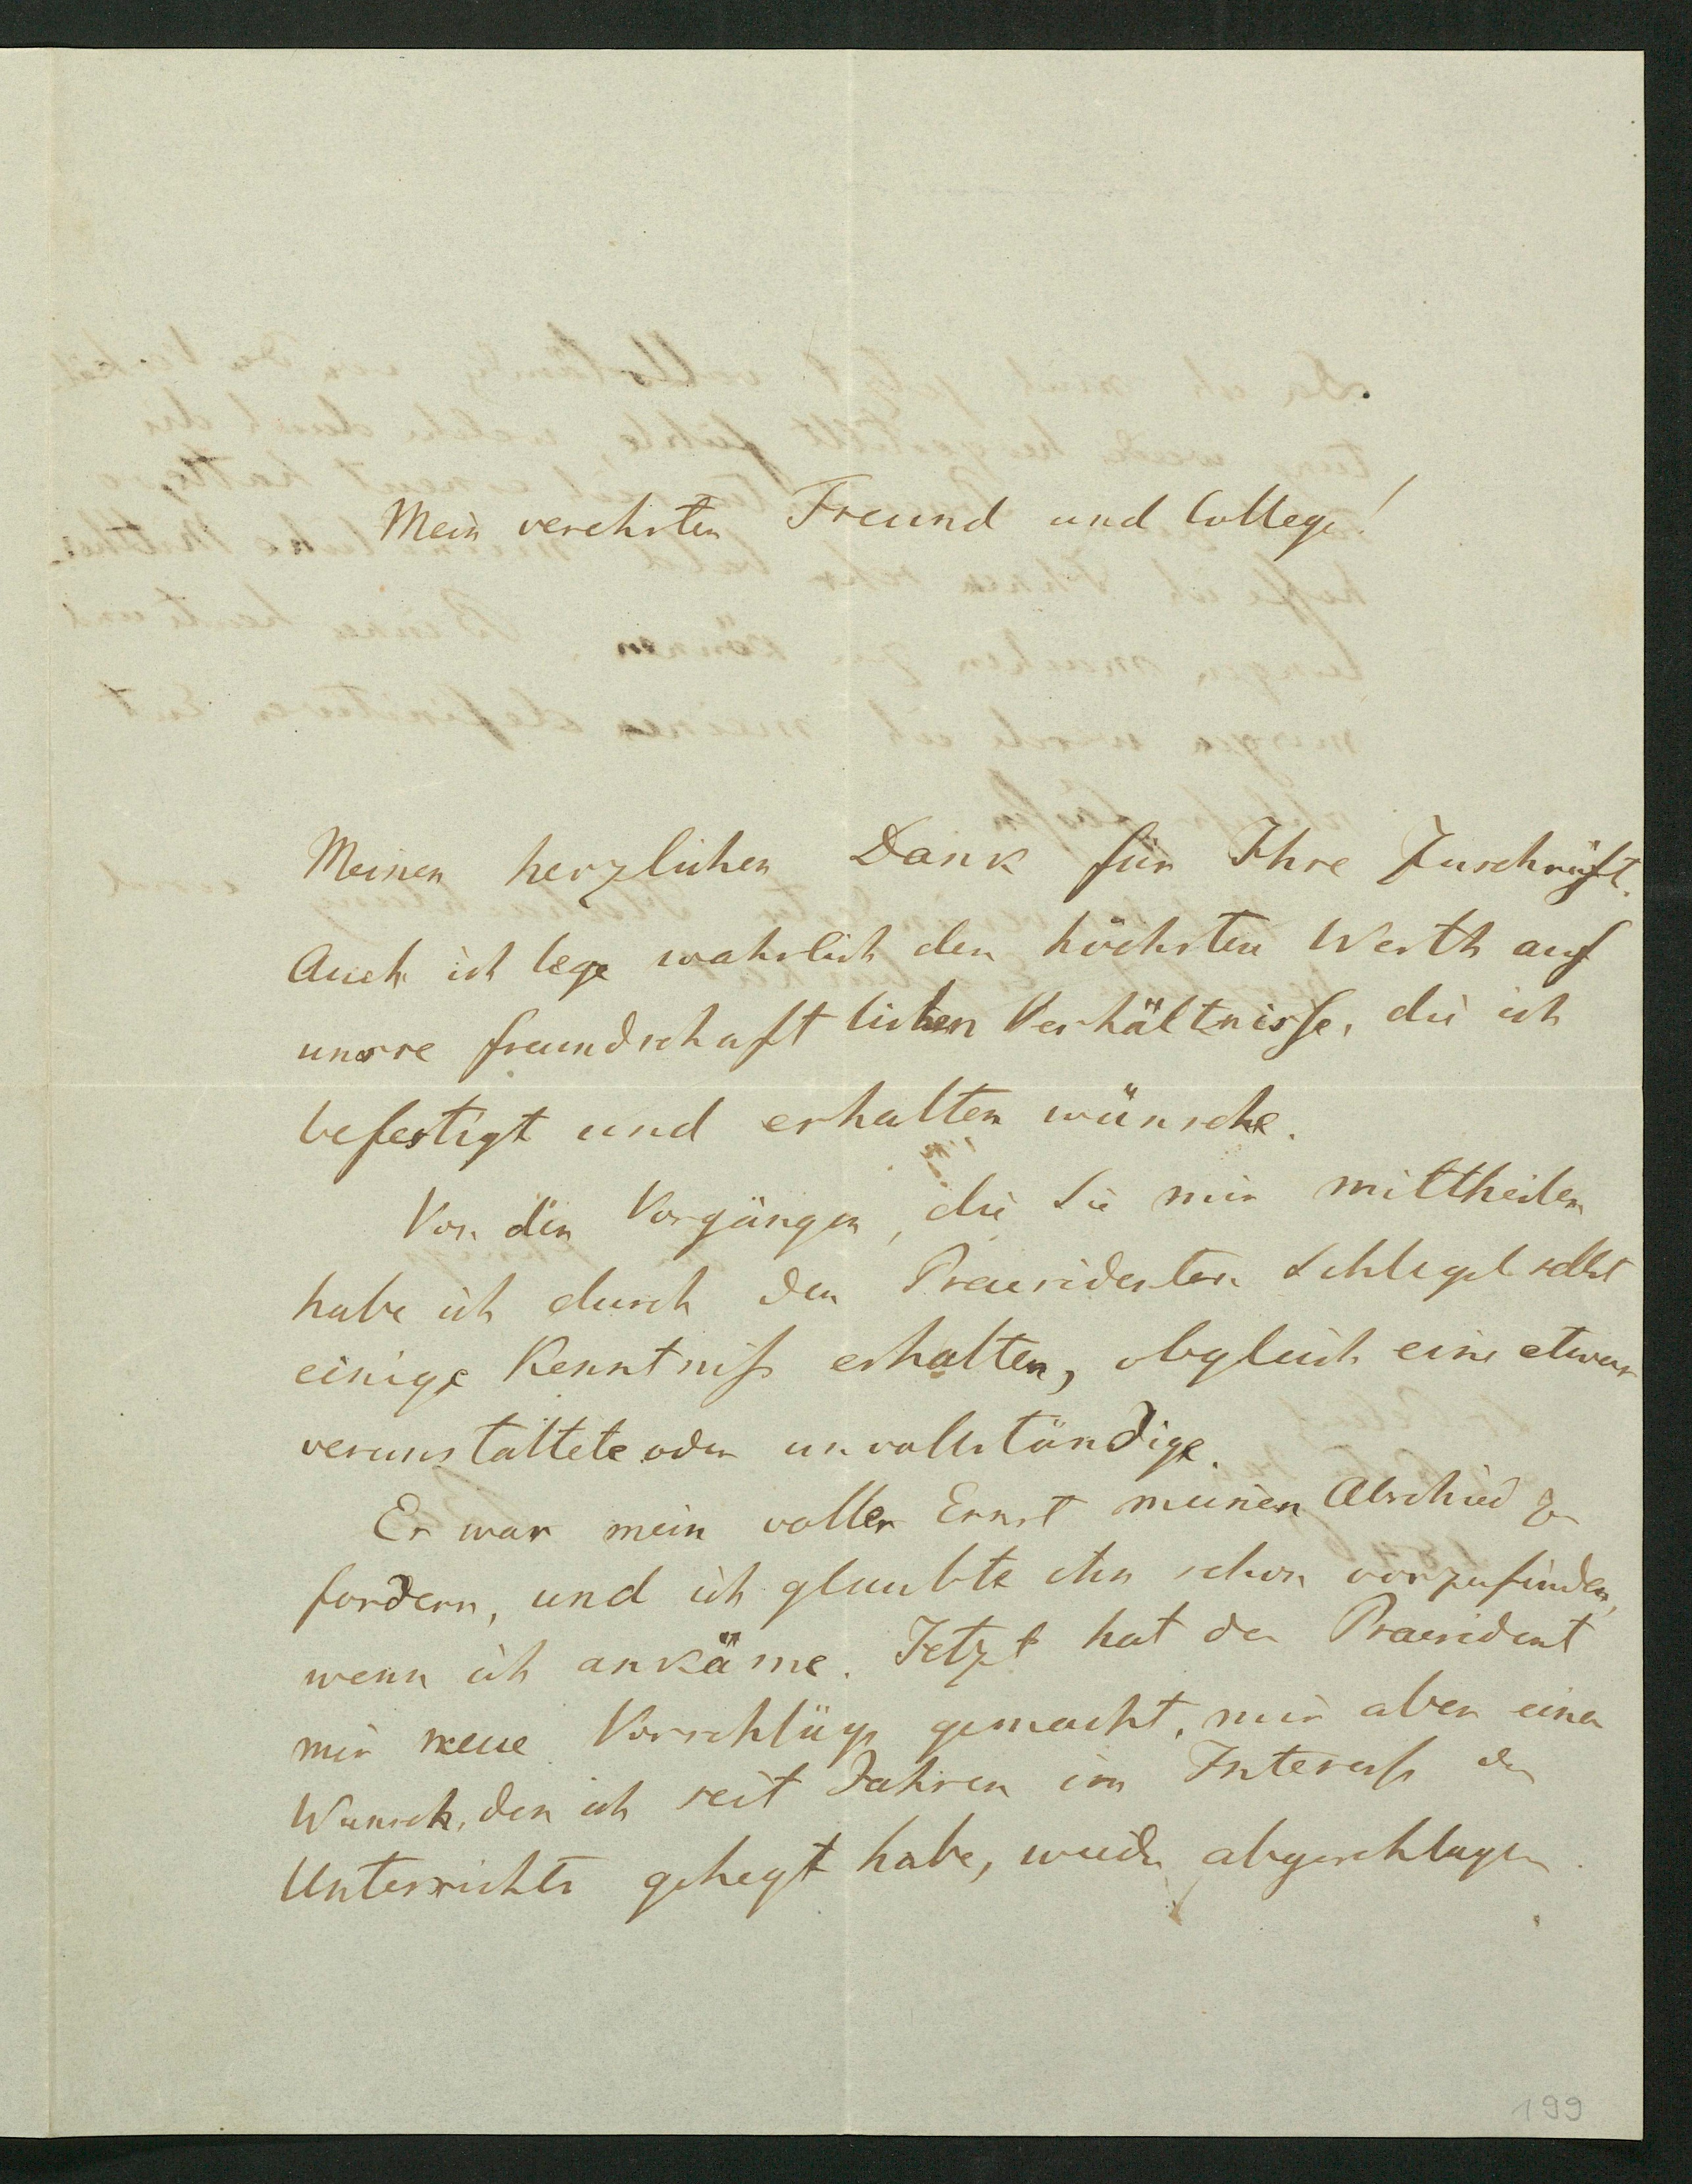 Mein verehrter Freund und College!
Meinen herzlichen Dank für Ihre Zuschrift.
Auch ich lege wahrlich den höchsten Werth auf
unsre freundschaftlichen Verhältnisse, die ich
befestigt und erhalten wünsche.
Von den Vorgängen, die Sie mir mittheilen
habe ich durch den Praesidenten Schlegel selbst
einige Kenntniß erhalten, obgleich eine etwas
verunstaltete oder unvollständige.
Es war mein voller Ernst meinen Abschied zu
fordern, und ich glaubte ihn schon vorzufinden,
wenn ich ankäme. Jetzt hat der Praesident
mir neue Vorschläge gemacht, mir aber einen
Wunsch, den ich seit Jahren im Interesse des
Unterrichts gehegt habe, wieder abgeschlagen.
199